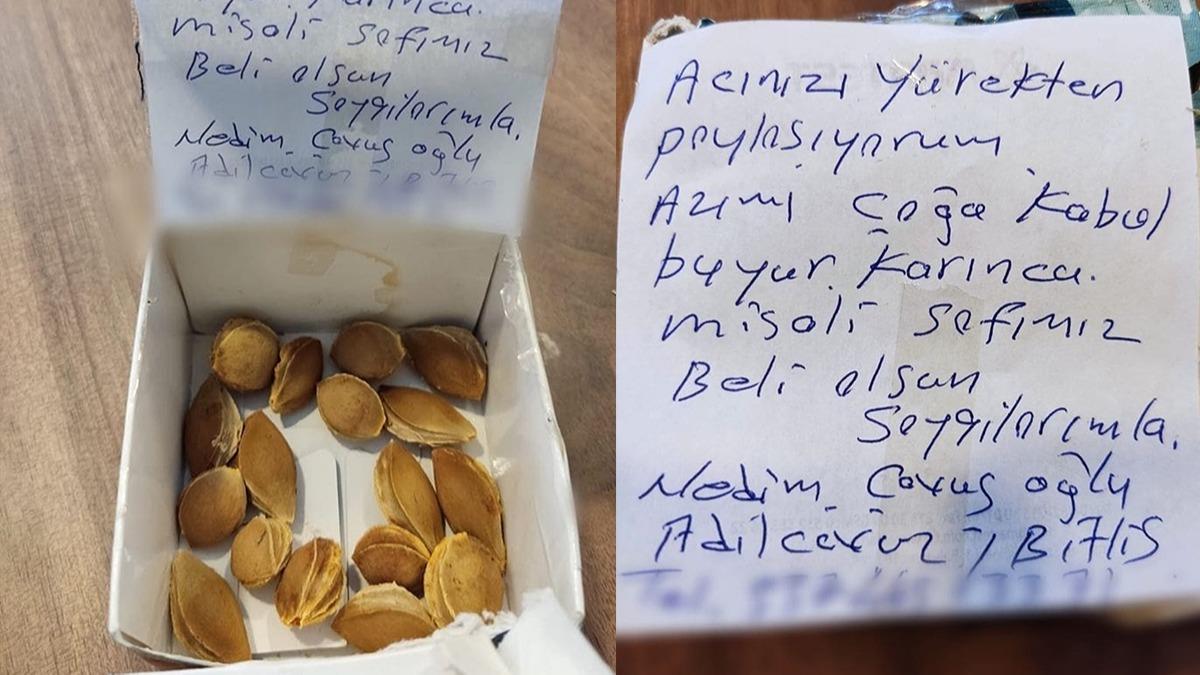 misali safımız
Beli olsun
Saygılarımla.
Nedim Çavuş oğlu
Adilcevaz, Bitlis
Acınızı yürekten
paylaşıyorum
Azımı çoğa kabul
buyur. Karınca.
misali safımız
Beli olsun
Saygılarımla.
Nedim Çavuş oğlu
Adilcevaz, Bitlis
Tel.